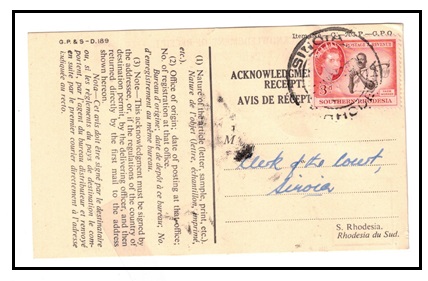 G.P.& S-D.189
G.P.O.
ACKNOWLEDGMENT
RECEIPT
AVIS DE RÉCEPT
POSTAGE & REVENUE
3D
SOUTHERN RHODESIA
(1) Nature of the article (letter, sample, print, etc.).
Nature de l'objet (lettre, échantillon, imprimé, etc.).
(2) Office of origin; date of posting at that office; No. of registration at that office.
Bureau d'origine; date de dépôt à ce bureau; No. d'enregistrement au même bureau.
(3) Note—This acknowledgment must be signed by the addressee, or, if the regulations of the country of destination permit, by the delivering officer, and then returned directly by the first mail to the address shown hereon.
Nota—Cet avis doit être signé par le destinataire ou, si les règlements du pays de destination le comportent, par l'agent du bureau distributeur et renvoyé en suite par le premier courier directement à l'adresse indiquée au recto.
M
Clerk of the Court,
Sinoia
S. Rhodesia.
Rhodesia du Sud.